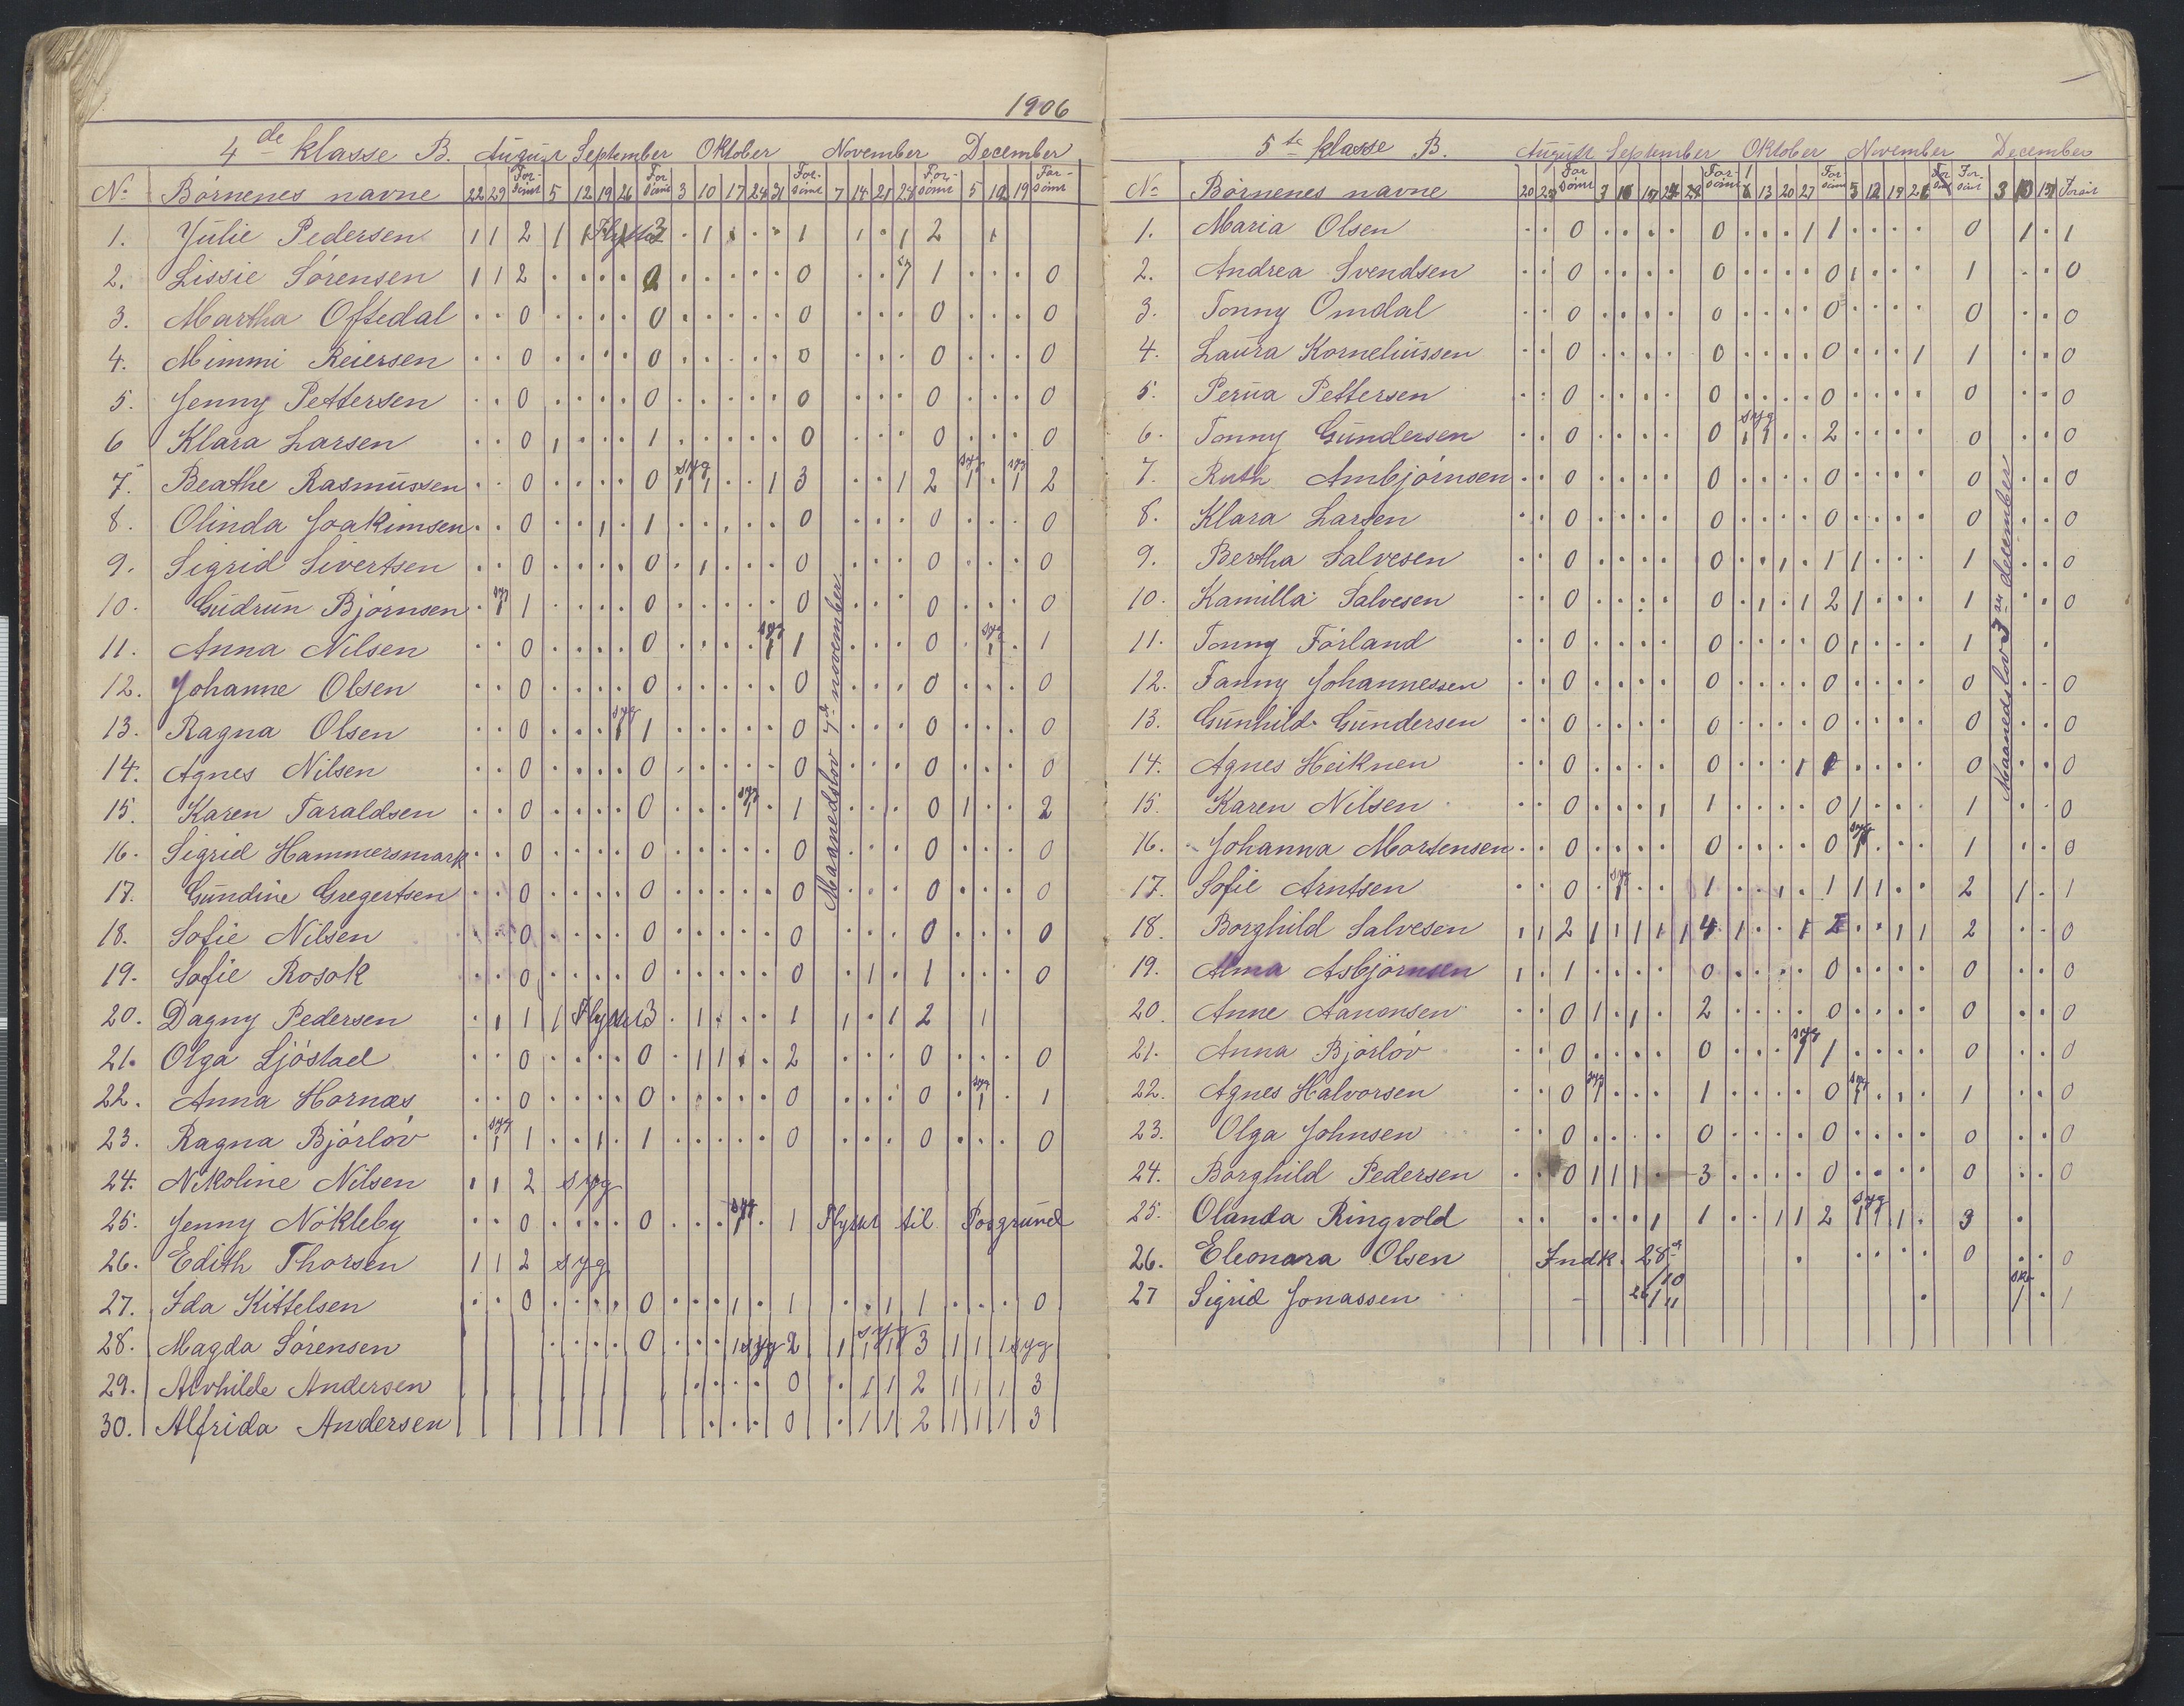 1906
4de klasse B. August September Oktober November December
No Børnenes navne 22 29 For-sömt 5 12 19 26 For sömt 3 10 17 24 31 For-sömt 7 14 21 28 For-sömt 5 12 19 For-sömt
1. Julie Pedersen 1 1 2 1 1 3 . 1 . . . 1 1 . 1 2 1
2. Lissie Sørensen 1 1 2 . . . . 0 . . . . . 0 . . 1 1 . . . 0
3. Martha Oftedal . . 0 . . . . 0 . . . . . 0 . . . 0 . . . 0
4. Mimmi Reiersen . . 0 . . . . 0 . . . . . 0 . . . 0 . . . 0
5. Jenny Pettersen . . 0 . . . . 0 . . . . . 0 . . . 0 . . . 0
6 Klara Larsen . . 0 1 . . . 1 . . . . . 0 . . . 0 . . . 0
7. Beathe Rasmussen . . 0 . . . . 0 syg 1 1 . . 1 3 . . 1 2 syg 1 . syg 1 2
8. Olinda Joakimsen . . 0 . . 1 . 1 . . . . . 0 . . . 0 . . . 0
9. Sigrid Sivertsen . . 0 . . . . 0 . 1 . . . 0 . . . 0 . . . 0
10. Gudrun Bjørnsen . syg 1 1 . . . . 0 . . . . . 0 . . . 0 . . . 0
11. Anna Nilsen . . 0 . . . . 0 . . . . syg 1 1 . . . 0 . syg 1 . 1
12. Johanne Olsen . . 0 . . . . 0 . . . . . 0 . . . 0 . . . 0
13. Ragna Olsen . . 0 . . . syg 1 1 . . . . . 0 . . . 0 . . . 0
14. Agnes Nilsen . . 0 . . . . 0 . . . . . 0 . . . 0 . . . 0
15. Karen Taraldsen . . 0 . . . . 0 . . . syg 1 . 1 . . . 0 1 . . 2
16. Sigrid Hammersmark . . 0 . . . . 0 . . . . . 0 . . . 0 . . . 0
17. Gundine Gregertsen . . 0 . . . . 0 . . . . . 0 . . . 0 . . . 0
18. Sofie Nilsen . . 0 . . . . 0 . . . . . 0 . . . 0 . . . 0
19. Sofie Rosok . . 0 . . . . 0 . . . . . 0 . 1 . 1 . . . 0
20. Dagny Pedersen . 1 1 1 3 . 1 . . . 1 1 . 1 2 1
21. Olga Ljøstad . . 0 . . . . 0 . 1 1 . . 2 . . . 0 . . . 0
22. Anna Hornæs . . 0 . . . . 0 . . . . . 0 . . . 0 . syg 1 . 1
23. Ragna Bjørløv . syg 1 1 . . 1 . 1 . . . . . 0 . . . 0 . . . 0
24. Nikoline Nilsen 1 1 2 syg
25. Jenny Nøkleby . . 0 . . . . 0 . . . syg 1 . 1 Flyttet til Porsgrund
26. Edith Thorsen 1 1 2 syg
27. Ida Kittelsen . . 0 . . . . 0 . . . 1 . 1 . . 1 1 . . . 0
28. Magda Sørensen . . . . 0 . . . 1 syg 2 1 syg 1 1 3 1 1 1 syg
29. Alvhilde Andersen . . . . 0 . 1 1 2 1 1 1 3
30. Alfrida Andersen . . . 0 . 1 1 2 1 1 1 3
Maanedslov 7de november.
5te klasse B. August September Oktober November December
No Børnenes navne 20 For sömt 3 For sömt 6 13 20 27 For sömt 5 12 19 26 For sömt 3 10 17
1. Maria Olsen . . 0 . . . . 0 . . . 1 1 . . . . 0 1 . 1
2. Andrea Svendsen . . 0 . . . . 0 . . . . 0 1 . . . 1 . . 0
3. Tonny Omdal . . 0 . . . . 0 . . . . 0 . . . . 0 . . 0
4. Laura Korneliussen . . 0 . . . . 0 . . . . 0 . . . 1 1 . . 0
5. Perua Pettersen . . 0 . . . . 0 . . . . 0 . . . . 0 . . 0
6. Tonny Gundersen . . 0 . . . . 0 syg 1 1 . . 2 . . . . 0 . . 0
7. Ruth Ambjørnsen . . 0 . . . . 0 . . . . 0 . . . . 0 . . 0
8. Klara Larsen . . 0 . . . . 0 . . . . 0 . . . . 0 . . 0
9. Bertha Salvesen . . 0 . . . . 0 . . 1 . 1 1 . . . 1 . . 0
10. Kamilla Salvesen . . 0 . . . . 0 . 1 . 1 2 1 . . . 1 . . 0
11. Tonny Førland . . 0 . . . . 0 . . . . 0 1 . . . 1 . .
12. Fanny Johannessen . . 0 . . . . 0 . . . . 0 . . . . 0 . . 0
13. Gunhild Gundersen . . 0 . . . . 0 . . . . 0 . . . . 0 . . 0
14. Agnes Heiknen . . 0 . . . . 0 . . . 1 1 . . . . 0 . . 0
15. Karen Nilsen . . 0 . . . 1 1 . . . . 0 1 . . . 1 . . 0
16. Johanna Mortensen . . 0 . . . . 0 . . . . 0 syg 1 . . . 1 . . 0
17. Sofie Arntsen . . 0 . syg 1 . . 1 . . 1 . 1 1 1 . . 2 1 . 1
18. Borghild Salvesen 1 1 2 1 1 1 1 1 4 1 . . 1 2 . . 1 1 2 . . 0
19. Alma Asbjørnsen 1 . 1 . . . . 0 . . . . 0 . . . . 0 . . 0
20. Anne Aanonsen . . 0 1 . 1 . 2 . . . . 0 . . . . 0 . . 0
21. Anna Bjørløv . . 0 . . . . 0 . . . syg 1 1 . . . . 0 . . 0
22. Agnes Halvorsen . . 0 syg 1 . . . 1 . . . . 0 syg 1 . . . 1 . . 0
23. Olga Johnsen . . 0 . . . . 0 . . . . 0 . . . . 0 . . 0
24. Borghild Pedersen . . 0 1 1 1 . 3 . . . . 0 . . . . 0 . . 0
25. Olanda Ringvold . . . . . 1 1 . . 1 1 2 syg 1 1 1 . 3 .
26. Eleonora Olsen Indk. 28/10 . . . . . 0 . . 0
27 Sigrid Jonassen - 26/11 . 1 . 1
Maanedslov 3die december